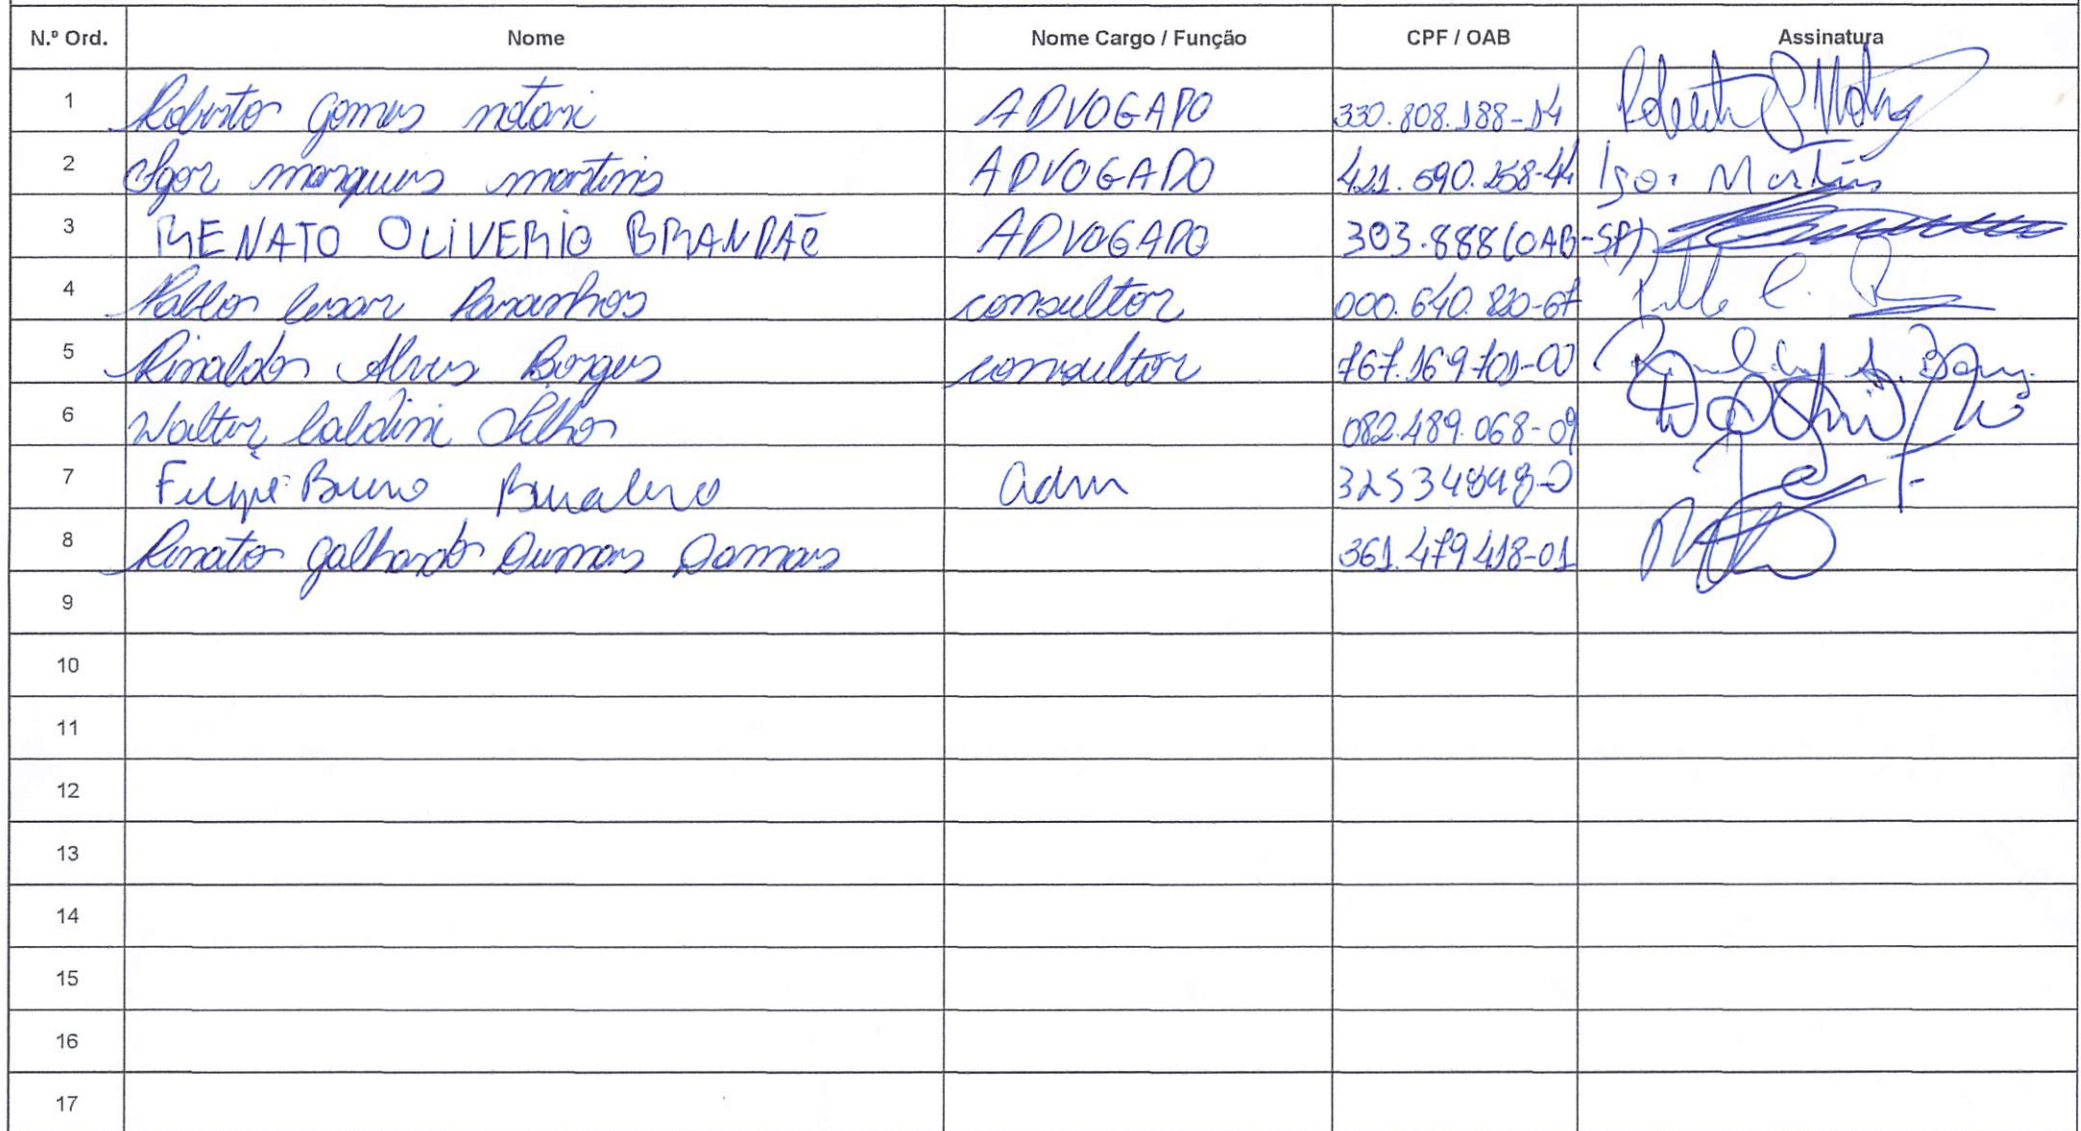 N.º Ord. Nome Nome Cargo / Função CPF / OAB Assinatura
1 Roberto Gomes Notari ADVOGADO 330.808.188-14
2 Igor Marques Martins ADVOGADO 421.690.258-44 Igor Martins
3 RENATO OLIVERIO BRANDÃO ADVOGADO 303.888 (OAB-SP)
4 Pablo Cesar Paranhos consultor 000.640.820-67
5 Rinaldo Alves Borges consultor 767.169.701-00
6 Walter Caldini Filho 082.489.068-09
7 Felipe Bruno adm
8 Renato Galhardo Dumas Damas 361.479.418-01
9
10
11
12
13
14
15
16
17